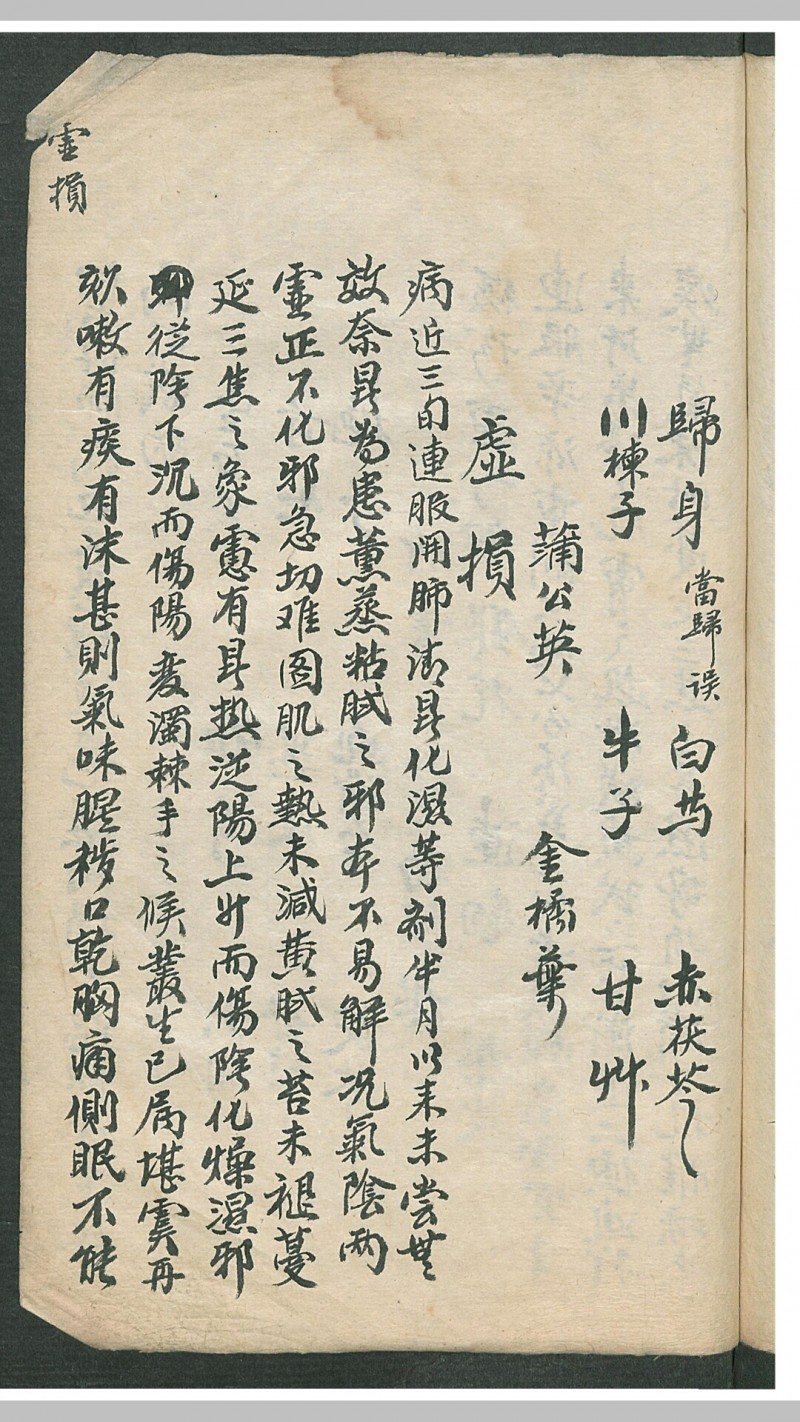 歸身 當歸誤 白芍 赤茯苓
川楝子 牛子 甘艸
蒲公英 金橘葉
虛損
病近三旬連服開肺清昷化濕等劑半月以来未尝無
效奈昷為患薰蒸粘膩之邪本不易解况氣陰两
虗正不化邪急切难圖肌之熱未減黄膩之苔未褪蔓
延三焦之象慮有昷热逆陽上升而傷陰化燥濕邪
從陰下沉而傷陽変濁棘手之候叢生已属堪虞再
欬嗽有痰有沫甚則氣味腥秽口乾胸痛側眠不能
虗損